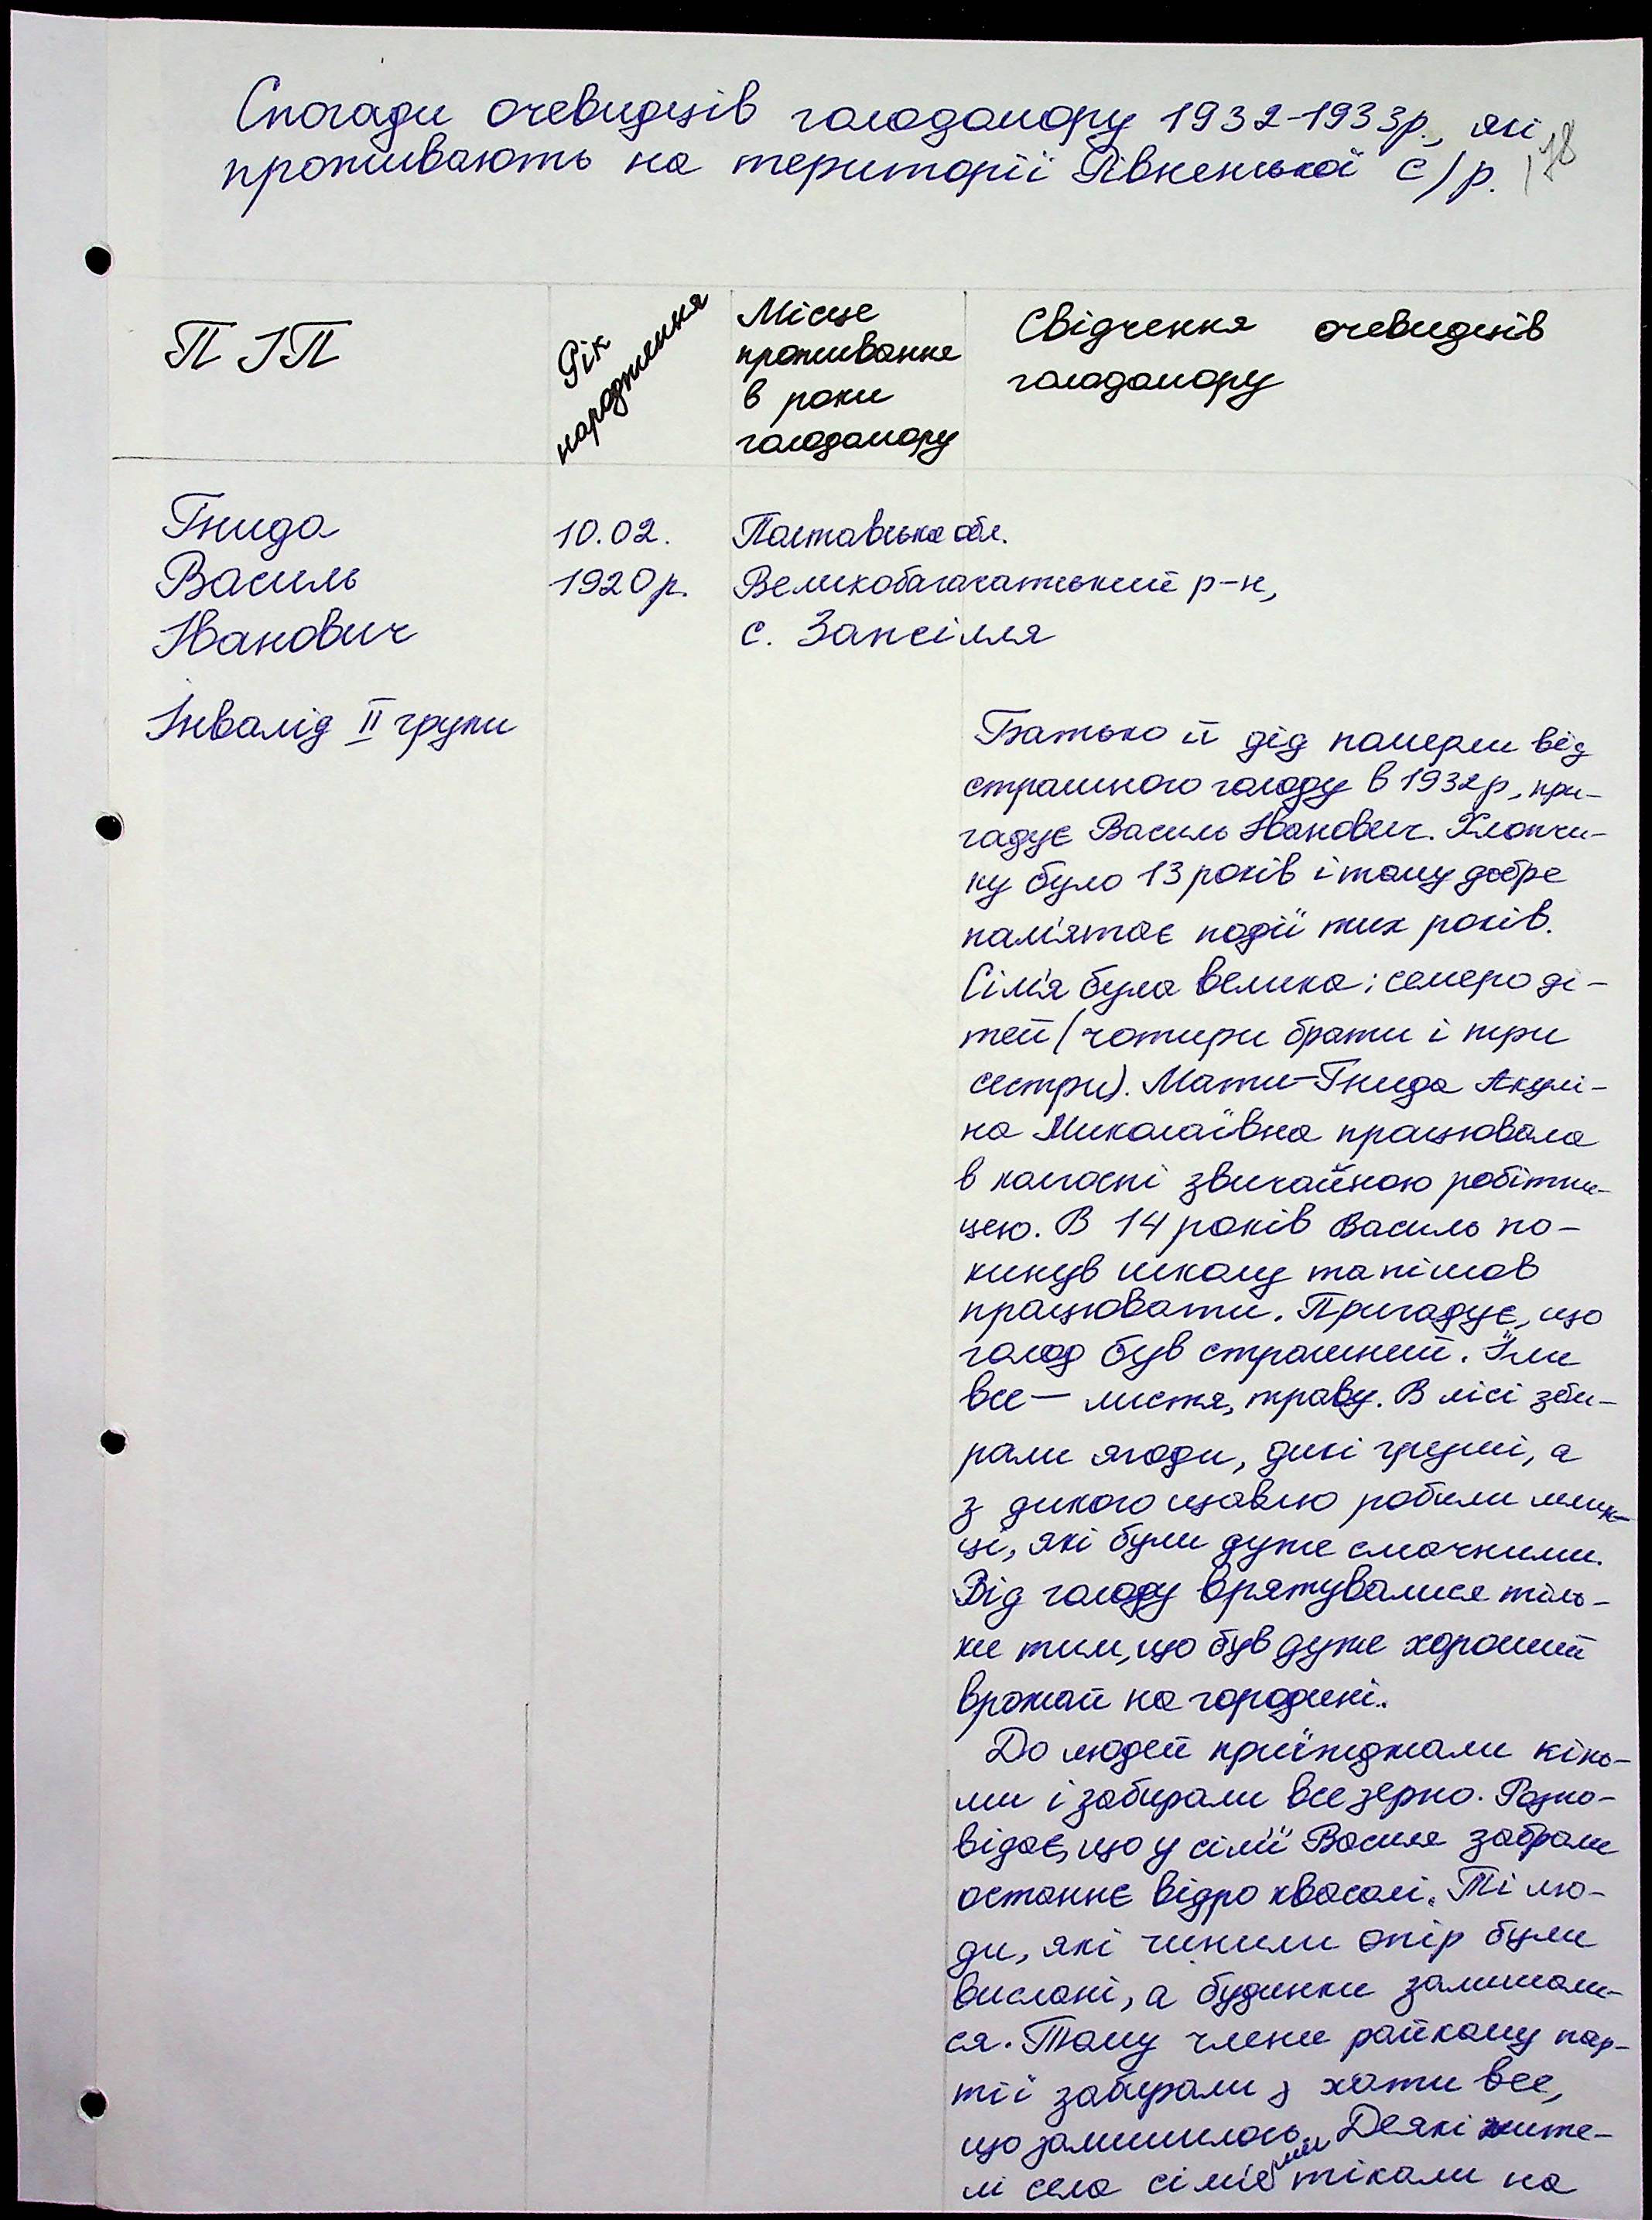 Спогади очевидців голодомору 1932-1933р., які
проживають на території Рівненської с/р.
178
П ІП
Рік
народження
Місце
проживання
в роки
голодомору
Свідчення очевидців
голодомору
Гнида
Василь
Іванович
10.02.
1920р.
Полтавська обл.
Великобагачатський р-н,
с. Запсілля
Інвалід ІІ групи
Батько й дід померли від
страшного голоду в 1932р, при-
гадує Василь Іванович. Хлопчи-
ку було 13 років і тому добре
пам'ятає події тих років.
Сім'я була велика: семеро ді-
тей (чотири брати і три
сестри). Мати-Гнида Акулі-
на Миколаївна працювала
в колгоспі звичайною робітни-
цею. В 14 років Василь по-
кинув школу та пішов
працювати. Пригадує, що
голод був страшний. Їли
все — листя, траву. В лісі зби-
рали ягоди, дикі груші, а
з дикого щавлю робили млин-
ці, які були дуже смачними.
Від голоду врятувалися тіль-
ки тим, що був дуже хороший
врожай на городині.
До людей приїжджали кінь-
ми і забирали все зерно. Розпо-
відає, що у сім'ї Василя забрали
останнє відро квасолі. Ті лю-
ди, які чинили опір були
вислані, а будинки залишали-
ся. Тому члени райкому пар-
тії забирали з хати все,
що залишилось. Деякі жите-
лі села сім'ями тікали на